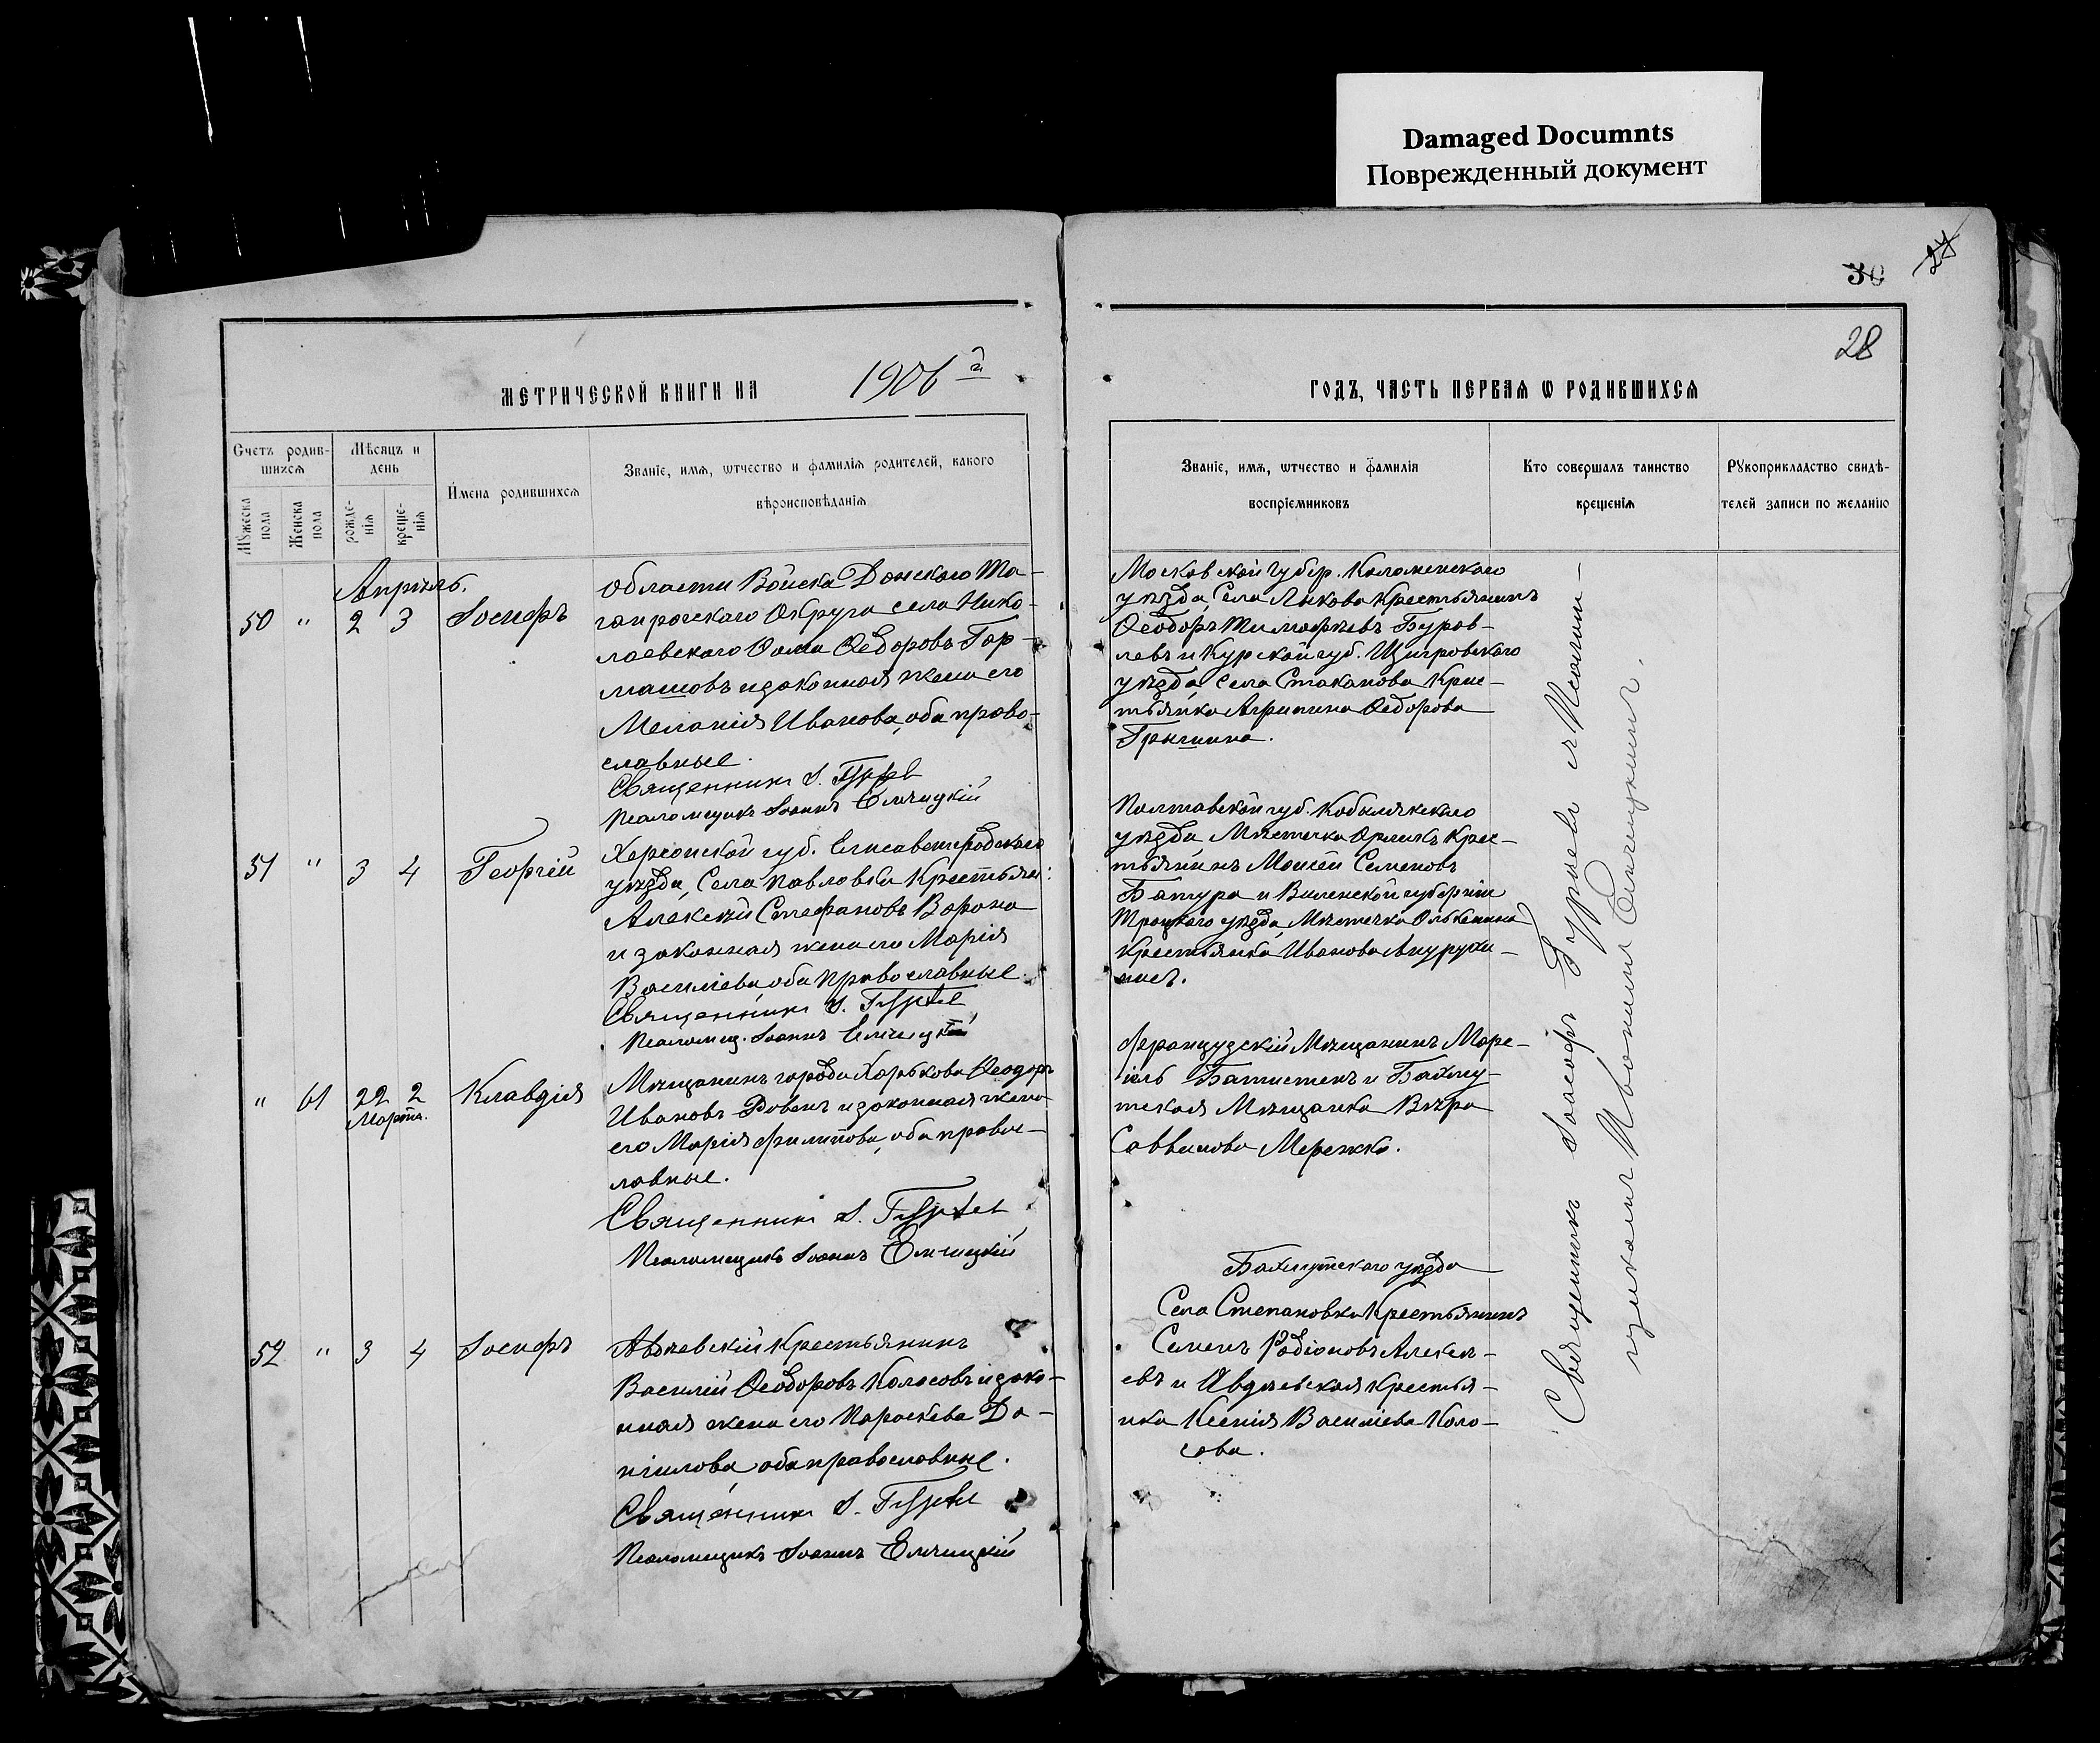 Damaged Documnts
Поврежденный документ
30
27
28
МЕТРИЧЕСКОЙ КНИГИ НА 1906й
ГОДЪ, ЧАСТЬ ПЕРВАЯ Ѡ РОДИВШИХСЯ
Счетъ родив-
шихся
Мѣсяцъ и
день
Мужеска
пола
Женска
пола
рожде-
нія
креще-
нія
Имена родившихся
Званіе, имя, ѡтчество и фамилія родителей, какого
вѣроисповѣданія
Званіе, имя, ѡтчество и фамилія
воспріемниковъ
Кто совершалъ таинство
крещенія
Рукоприкладство свидѣ-
телей записи по желанію
Апрѣль.
50 " 2 3 Іосифъ
Области Войска Донского Та-
ганрогскаго Округа села Нико-
лаевскаго Ѳома Ѳедоровъ Гор-
машовъ и законная жена его
Меланія Иванова, оба право-
славные.
Священникъ І. Гурьевъ
Псаломщикъ Іоаннъ Елчицкій
Московской губер. Коломенскаго
уѣзда, Села Лыкова Крестьянинъ
Ѳеодоръ Тимофѣевъ Буров-
левъ и Курской губ. Щигровскаго
уѣзда, Села Стаканова Крес-
тьянка Агрипина Ѳедорова
51 " 3 4 Георгій
Херсонской губ. Елисаветградскаго
уѣзда, Села Павловки Крестьян:
Алексѣй Стефановъ Ворона
и законная жена его Марія
Василіева, оба православные.
Священникъ І. Гурьевъ
Псаломщ. Іоаннъ Елчицкій
Полтавской губ. Кобелякскаго
уѣзда, Мѣстечка Орликъ Крес-
тьянинъ Моисей Семеновъ
Батура и Виленской губерніи
Троцкаго уѣзда, Мѣстечка Олькеники
Крестьянка Иванова
" 61 22 2 Клавдія
Марта.
Мѣщанинъ города Харькова Ѳеодоръ
Ивановъ Ровенъ и законная жена
его Марія Филипова, оба правос-
лавные.
Священникъ І. Гурьевъ
Псаломщикъ Іоаннъ Елчицкій
Французскій Мѣщанинъ Маре-
іль Батистенъ и Бахму-
тская Мѣщанка Вѣра
Саввинова Мережко.
52 " 3 4 Іосифъ
Авдѣевскій Крестьянинъ
Василій Ѳеодоровъ Колосовъ и зако-
нная жена его Параскева Да-
ніилова, оба православные.
Священникъ І. Гурьевъ
Псаломщикъ Іоаннъ Елчицкій
Бахмутскаго уѣзда
Села Степановки Крестьянинъ
Семенъ Родіоновъ Алексѣ-
евъ и Авдѣевская Крестья-
нка Ксенія Василіева Коло-
сова.
Священникъ Іосифъ Гурьевъ и Псалом-
щикомъ Іоанномъ Елчицкимъ.